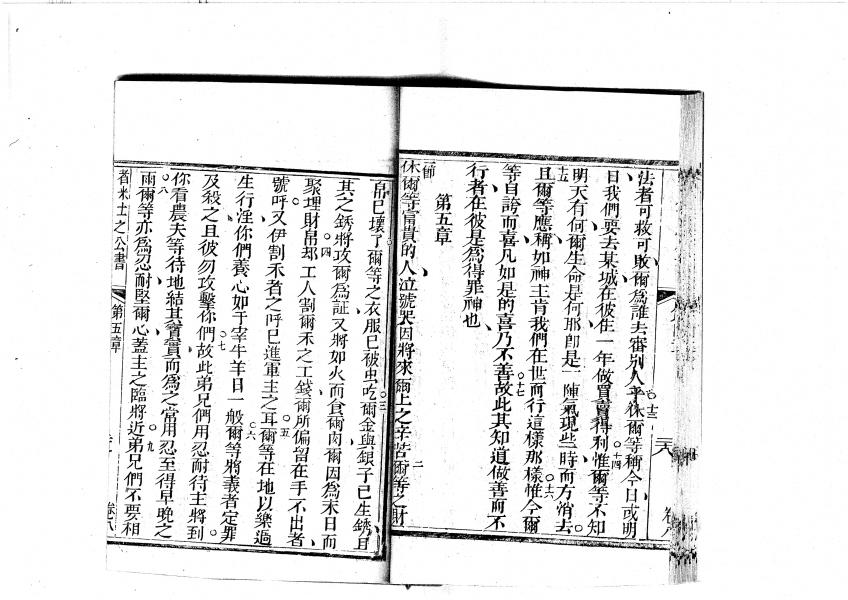 法者可救可敗爾爲誰去審別人乎休爾等稱今日或明
日我們要去某城在彼住一年做買賣得利惟爾等不知
明天有何爾生命是何那卽是一陣氣現些時而方消去
且爾等應稱如神主肯我們在世而行這樣那樣惟今爾
等自誇而喜凡如是的喜乃不善故此其知道做善而不
行者在彼是爲得罪神也
第五章
一節
休爾等富貴的人泣號哭因將來爾上之辛苦爾等之財
帛已壞了爾等之衣服已被虫吃爾金與銀子已生銹且
其之銹將攻爾爲証又將如火而食爾肉爾因爲末日而
聚埋財帛却工人割爾禾之工錢爾所偏留在手不出者
號呼又伊割禾者之呼已進軍主之耳爾等在地以樂過
生行淫你們養心如于宰牛羊日一般爾等將義者定罪
及殺之且彼勿攻擊你們故此弟兄們用忍耐待主將到
你看農夫等待地結其寶實而爲之常用忍至得早晚之
雨爾等亦爲忍耐堅爾心蓋主之臨將近弟兄們不要相
者米士之公書
第五章
卷八